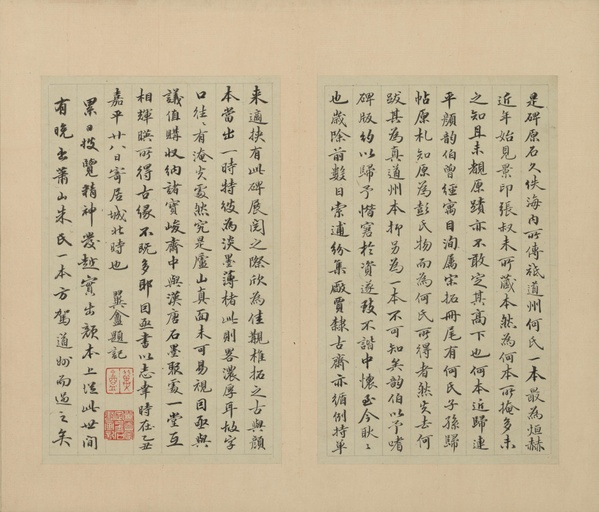 是碑原石久佚海內所傳祗道州何氏一本最為烜赫
近年始見景印張叔未所藏本然為何本所掩多未
之知且未覩原蹟亦不敢定其高下也何本近歸連
平顏韵伯曾經寓目洵屬宋拓冊尾有何氏子孫歸
帖原札知原為彭氏物而為何氏所得者然失去何
跋其為真道州本抑另為一本不可知矣韵伯以予嗜
碑版約以歸予惜窘於資遂致不諧中懷至今耿耿
也歲除前數日索逋紛集廠賈隸古齋亦循例持單
來適挾有此碑展閱之際欣為佳觀椎拓之古與顏
本當出一時特彼為淡墨薄楮此則畧濃厚耳故字
口往往有淹失處然究是廬山真面未可易視因亟與
議值購收納諸寶峻齋中與漢唐石墨聚處一堂互
相輝暎所得古緣不既多耶因亟書以志幸時在乙丑
嘉平廿八日寄居城北時也 異盦題記
累日披覽精神發越實出顏本上從此世間
有晚出蕭山朱氏一本方駕道州而過之矣